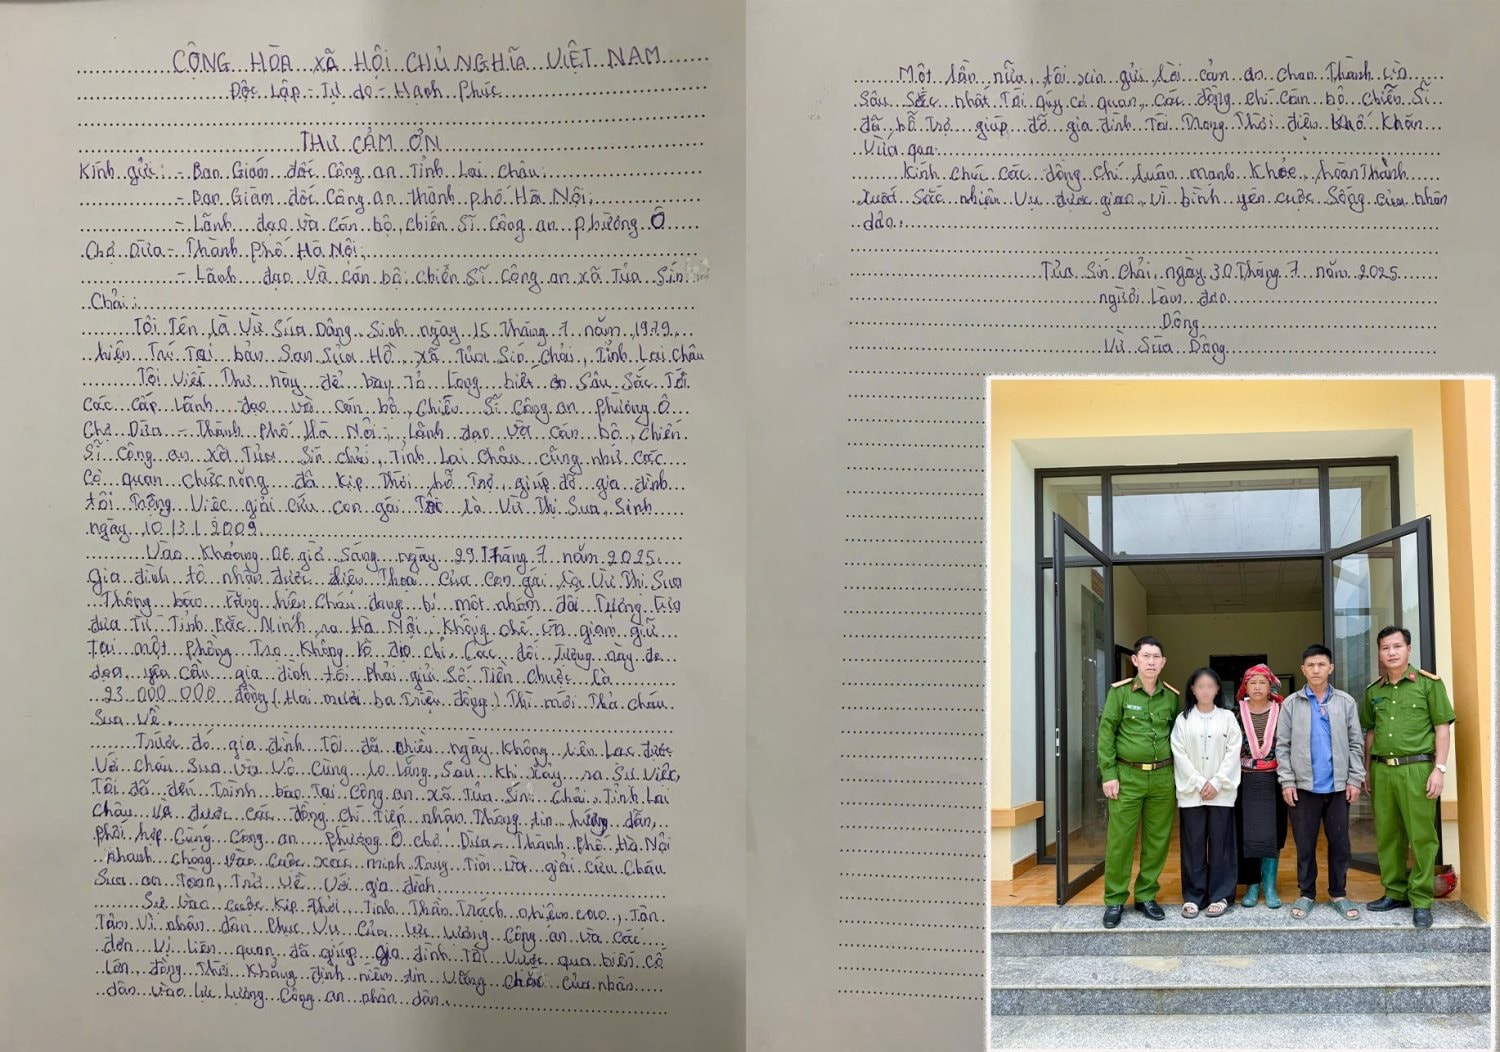 CỘNG HÒA XÃ HỘI CHỦ NGHĨA VIỆT NAM
Độc Lập - Tự do - Hạnh Phúc
THƯ CẢM ƠN
Kính gửi: - Ban Giám đốc Công an Tỉnh Lai Châu;
- Ban Giám đốc Công an thành phố Hà Nội;
- Lãnh đạo và Cán bộ, chiến Sĩ Công an phường Ô
Chợ Dừa - Thành Phố Hà Nội;
- Lãnh đạo Và Cán bộ chiến Sĩ Công an xã Tủa Sín
Chải;
Tôi Tên là Vừ Súa Dông, Sinh ngày 15 Tháng 7 năm 1979
hiện Trú Tại bản San Sủa Hồ, xã Tủa Sín Chải, Tỉnh Lai Châu
Tôi Viết Thư này để bày Tỏ Lòng biết ơn Sâu Sắc Tới
Các cấp Lãnh đạo và cán bộ, Chiến Sĩ Công an Phường Ô
Chợ Dừa - Thành Phố Hà Nội; Lãnh đạo Và Cán bộ, chiến
Sĩ Công an xã Tủa Sín chải, Tỉnh Lai Châu cũng như Các
Cơ quan chức năng đã Kịp Thời hỗ Trợ, giúp đỡ gia đình
tôi Trong Việc giải cứu con gái Tôi là Vừ Thị Sua, Sinh
ngày 10/3/2009
Vào Khoảng 06 giờ Sáng ngày 29 Tháng 7 năm 2025
Gia đình tô nhận được điện Thoại Của Con gái tôi Vừ Thị Sua
Thông báo Rằng hiện Cháu đang bị một nhóm đối Tượng Lừa
đưa Từ Tỉnh Bắc Ninh ra Hà Nội, Khống chế và giam giữ
Tại một phòng Trọ Không rõ địa chỉ. Các đối Tượng này đe
dọa yêu Cầu gia đình tôi Phải gửi Số Tiền Chuộc là
23.000.000 đồng (Hai mươi ba Triệu đồng) Thì mới Thả cháu
Sua Về.
Trước đó gia đình Tôi đã nhiều ngày Không liên Lạc được
Với cháu Sua và Vô Cùng lo lắng, Sau khi xảy ra Sự Việc,
Tôi đã đến Trình báo Tại Công an xã Tủa Sín Chải, Tỉnh Lai
Châu và được các đồng Chí Tiếp nhận Thông tin hướng dẫn,
phối hợp Cùng Công an phường Ô chợ Dừa - Thành Phố Hà Nội
nhanh chóng vào Cuộc xác minh Truy Tìm Và giải Cứu Cháu
Sua an Toàn, Trở Về Với gia đình.
Sự Vào cuộc Kịp Thời, Tinh Thần Trách nhiệm cao, Tận
Tâm Vì nhân dân Phục Vụ Của lực lượng Công an Và Các
đơn vị liên quan đã giúp gia đình Tôi Vượt qua biến cố
lớn, đồng Thời Khẳng định niềm tin Vững chắc của nhân
dân vào lực Lượng Công an nhân dân.
Một lần nữa, tôi xin gửi lời cảm ơn chân Thành Và
Sâu Sắc nhất Tới qúy cơ quan, các đồng chí cán bộ chiến Sĩ
đã hỗ Trợ giúp đỡ gia đình Tôi Trong Thời điểm Khó Khăn
Vừa qua.
Kính chúc các đồng chí luôn mạnh Khỏe, hoàn Thành
xuất Sắc nhiệm Vụ được giao, vì bình yên cuộc Sống của nhân
dân.
Tủa Sín Chải, ngày 30 Tháng 7 năm 2025
người Làm đơn
Dông
Vừ Súa Dông